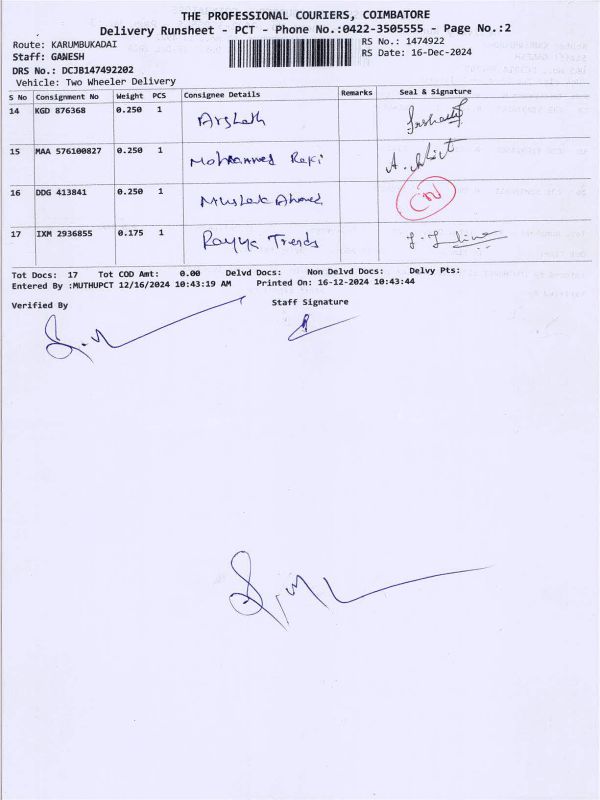 THE PROFESSIONAL COURIERS, COIMBATORE
Delivery Runsheet - PCT - Phone No.:0422-3505555 - Page No.:2
Route: KARUMBUKADAI
RS No.: 1474922
Staff: GANESH
RS Date: 16-Dec-2024
DRS No.: DCJB147492202
Vehicle: Two Wheeler Delivery
S No Consignment No Weight PCS Consignee Details Remarks Seal & Signature
14 KGD 876368 0.250 1 Arshath
15 MAA 576100827 0.250 1 Mohammed Rafi
16 DDG 413841 0.250 1 Mushtak Ahamed CN
17 IXM 2936855 0.175 1 Trends
Tot Docs: 17 Tot COD Amt: 0.00 Delvd Docs: Non Delvd Docs: Delvy Pts:
Entered By :MUTHUPCT 12/16/2024 10:43:19 AM Printed On: 16-12-2024 10:43:44
Verified By Staff Signature